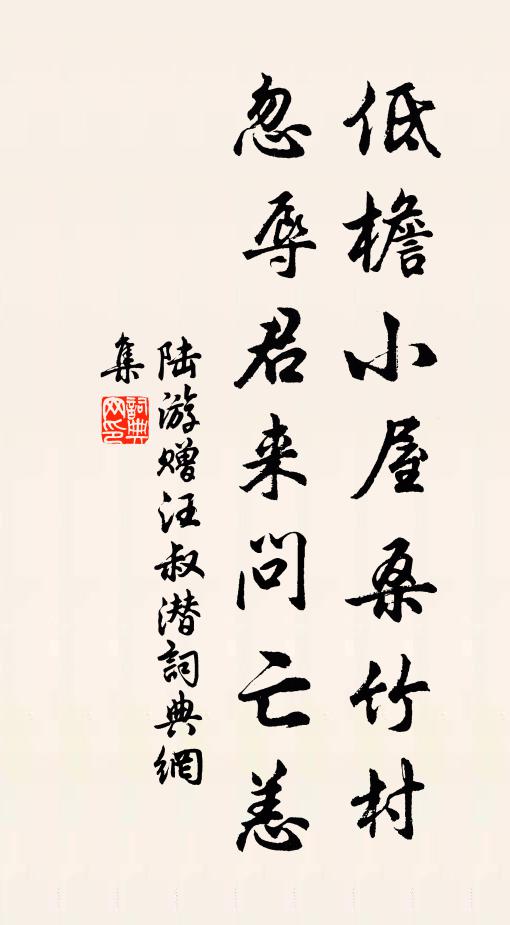 低檐小屋桑竹村
忽辱君来問亡恙
陆游赠汪叔潜詞典網
集
詞典
网印